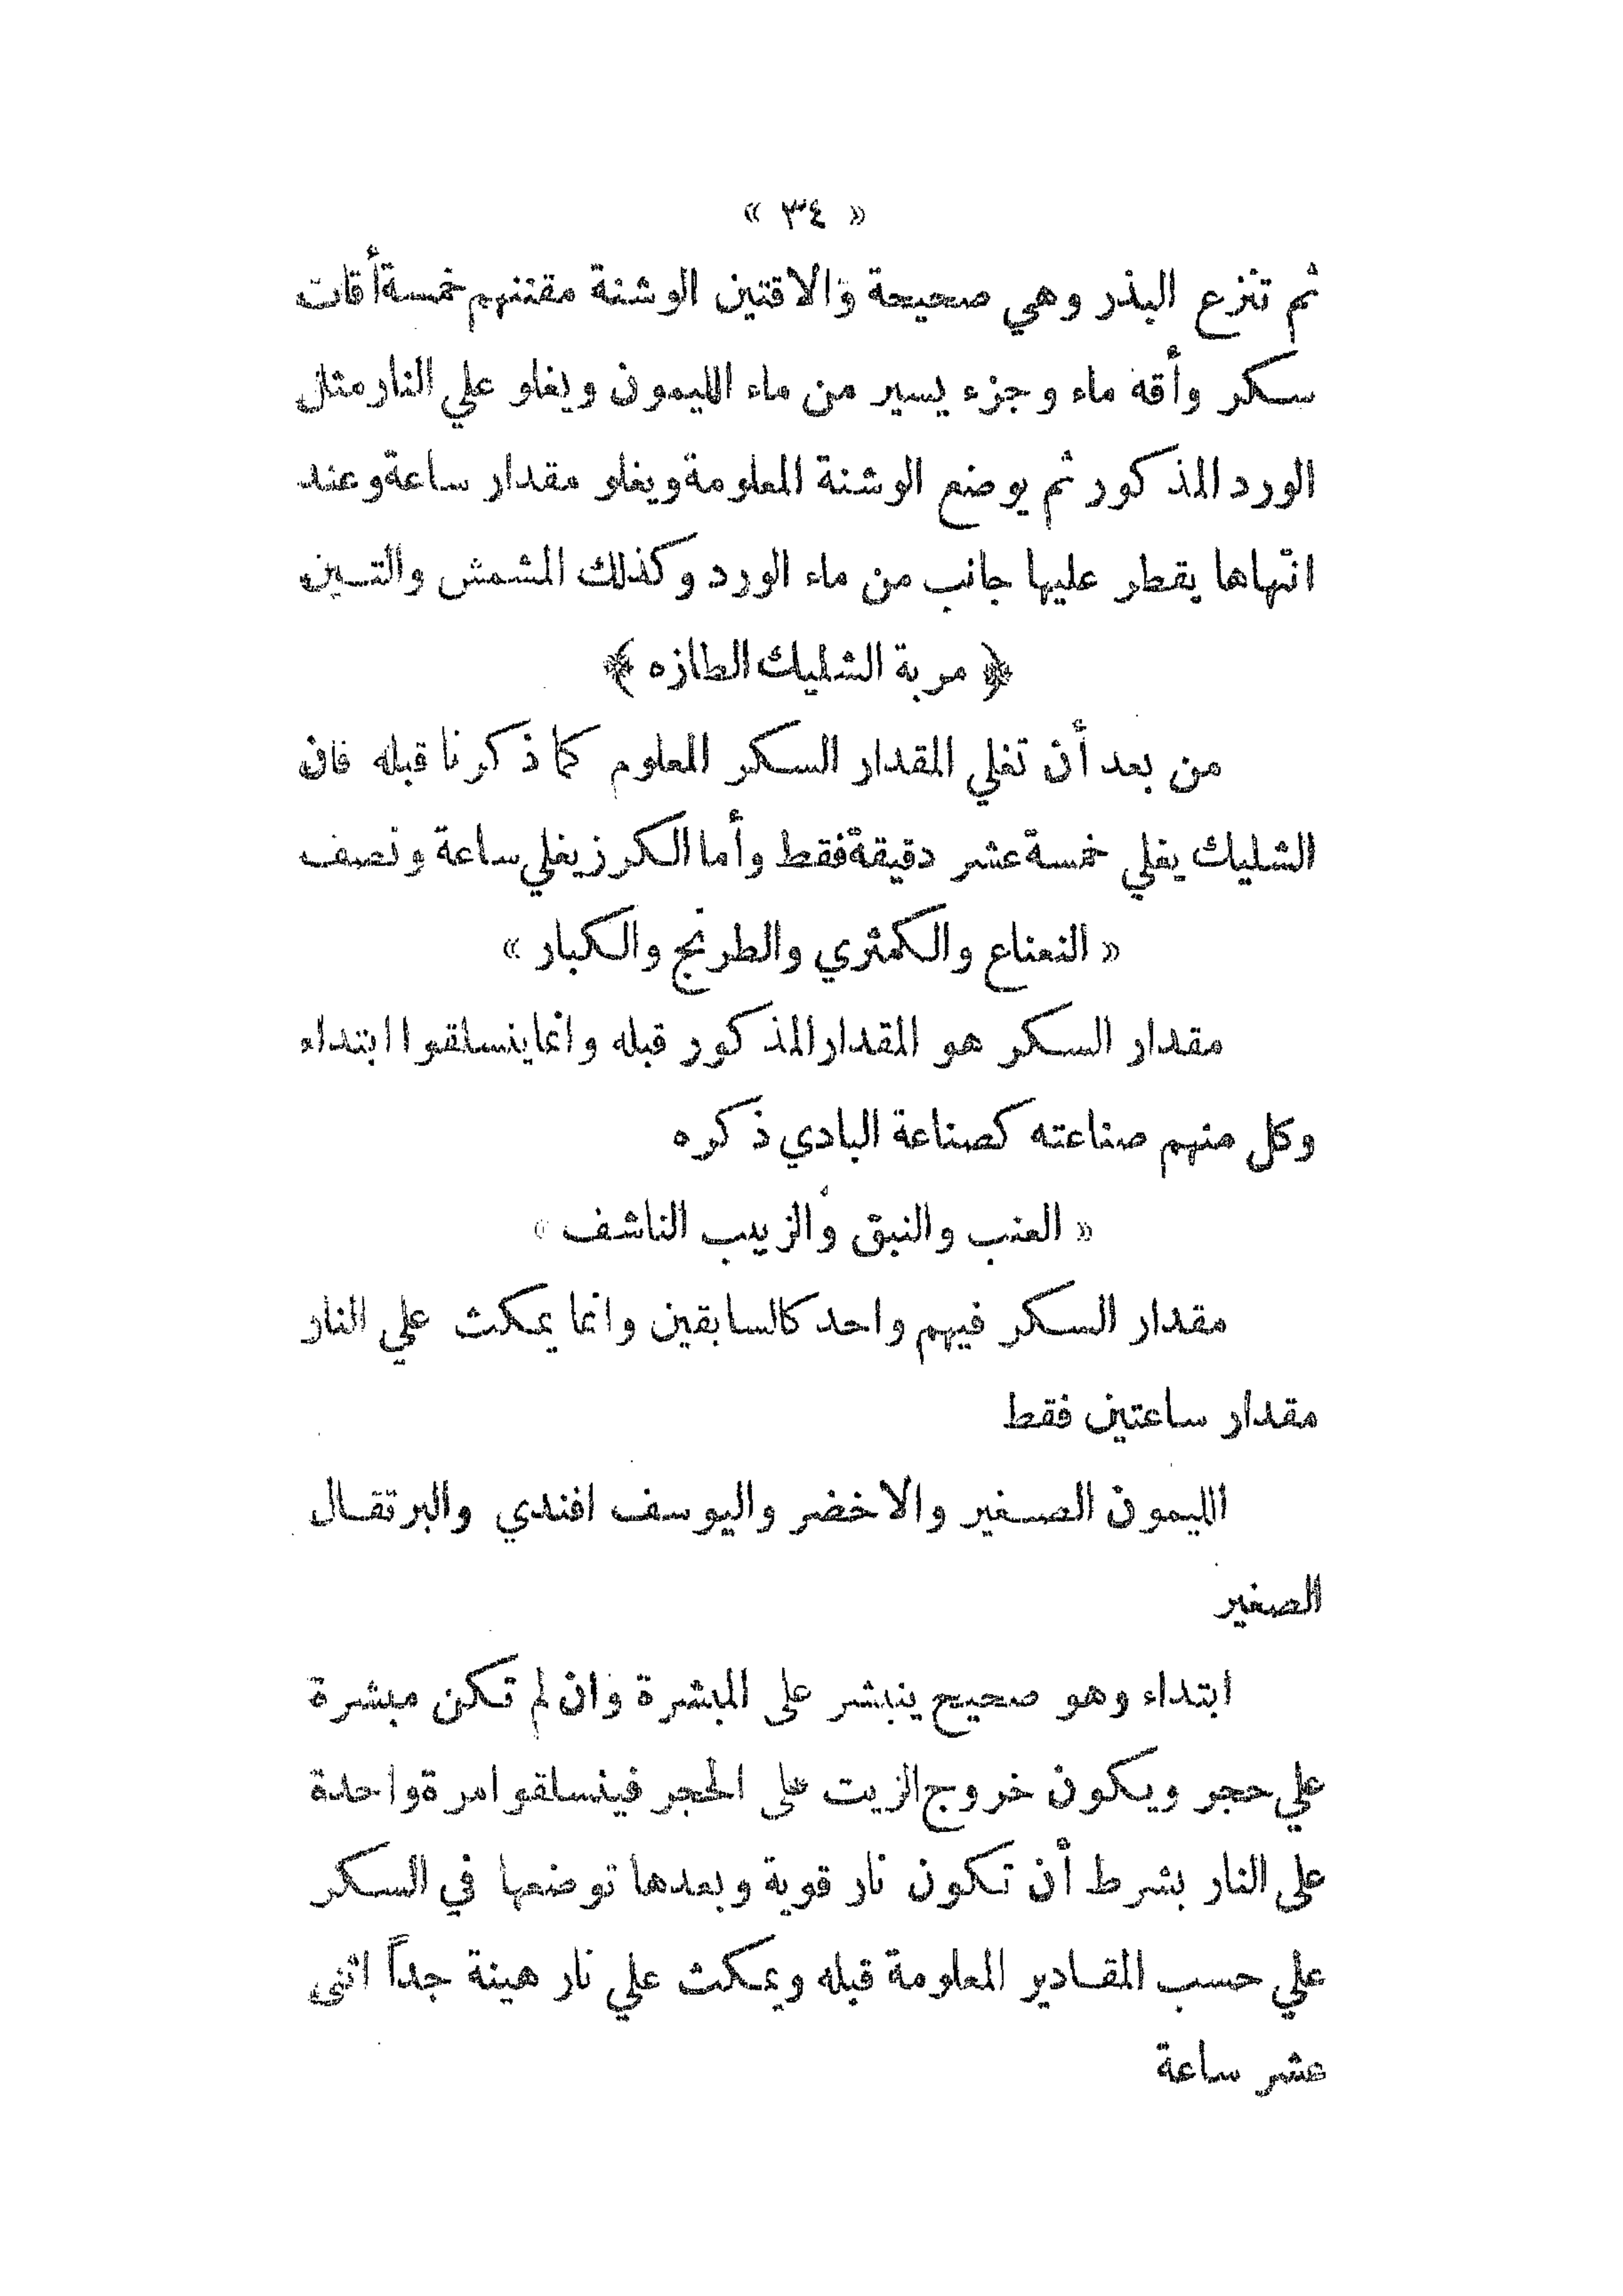 « ٣٤ »
ثم تنزع البذر وهي صحيحة والاقتين الوشنة مقتنهم خمسة أقات
سكر وأقه ماء وجزء يسير من ماء الليمون ويغلو علي النار مثل
الورد المذكور ثم يوضع الوشنة المعلومة ويغلو مقدار ساعة وعند
انتهاها يقطر عليها جانب من ماء الورد وكذلك المشمش والتين
﴿ مربة الشليك الطازه ﴾
من بعد أن تغلي المقدار السكر المعلوم كما ذكرنا قبله فان
الشليك يغلي خمسة عشر دقيقة فقط وأما الكرز يغلي ساعة ونصف
« النعناع والكمثري والطرنج والكبار »
مقدار السكر هو المقدار المذكور قبله وانما ينسلقوا ابتداء
وكل منهم صناعته كصناعة البادي ذكره
« العنب والنبق والزبيب الناشف »
مقدار السكر فيهم واحد كالسابقين وانما يمكث علي النار
مقدار ساعتين فقط
الليمون الصغير والاخضر واليوسف افندي والبرتقال
الصغير
ابتداء وهو صحيح ينبشر على المبشرة وان لم تكن مبشرة
علي حجر ويكون خروج الزيت على الحجر فينسلقوا مرة واحدة
على النار بشرط أن تكون نار قوية وبعدها توضعها في السكر
علي حسب المقادير المعلومة قبله ويمكث علي نار هينة جداً اثنى
عشر ساعة